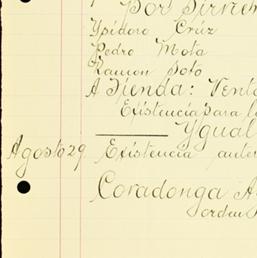 Por Sirvien
Ysidoro Cruz
Pedro Mota
Ramon Soto
A Tienda: Vento
Existencia para lo
Ygual
Agosto 29 Existencia anter
Coradonga A
orden